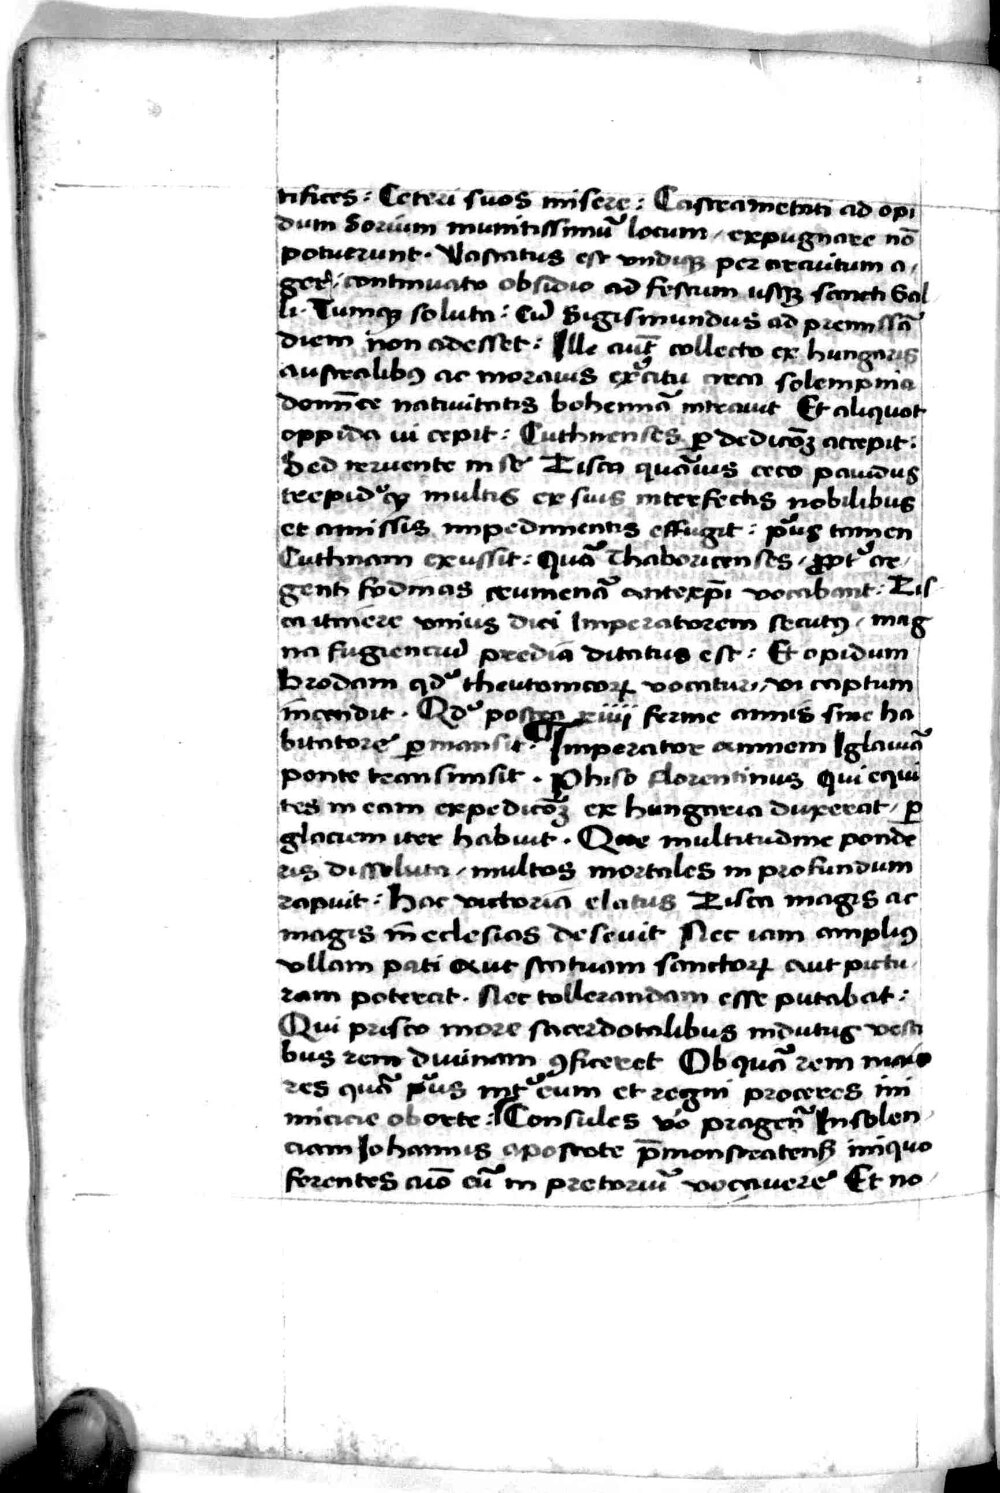 tifices : Ceteri suos misere : Castrametati ad opi
dum Sorium munitissimū locum / expugnare nō
potuerunt . Vastatus est vndiqꝫ per circuitum a /
ger / continuato obsidio ad festum usqꝫ sancti Gal
li . Tumqꝫ soluta : Cū Sigismundus ad premissā
diem non adesset : Ille aut̄ collecto ex hungaris
australibꝰ ac morauis ex̄citu circa solempnia
domīce natiuitatis bohemiā intrauit Et aliquot
oppida ui cepit : Cuthnenses ꝑ dedicōꝫ accepit :
Sed reuente in se Zisca quāuis ceco pauidus
trepidusqꝫ multis ex suis interfectis nobilibus
et amissis impedimentis effugit : pꝰus tamen
Cuthnam exussit : Quā Thaboricenses / ꝓpt̄ ar /
genti fodinas crumenā antexp̄i vocabant : Zis
ca itinere vnius diei Imperatorem secutꝰ / mag
na fugienciū predia ditatus est : Et opidum
brodam qd̄ theutonicoꝝ vocatur / vi captum
incendit . Qd̄ postea xiiij ferme annis sine ha
bitatore ꝑmansit . Imperator amnem Iglauiā
ponte transmisit . Phiso florentinus Qui equi
tes in eam expedicōꝫ ex hungaria duxerat / ꝑ
glaciem iter habuit . Que multitudine ponde
ris dissoluta / multos mortales in profundum
rapuit : hac victoria elatus Zisca magis ac
magis in eclesias deseuit Nec iam ampliꝰ
vllam pati aut statuam sanctoꝝ aut pictu /
ram poterat . Nec tollerandam esse putabat :
Qui prisco more sacerdotalibus indutus vesti
bus rem diuinam ꝯficeret Ob quā rem maio
res quā pꝰus int̄ eum et regni proceres ini
micicie oborte : Consules vō pragen̄ Insolen /
ciam Iohannis apostote p̄monstratenß iniquo
ferentes aīo eū in pretoriū vocauere Et no /